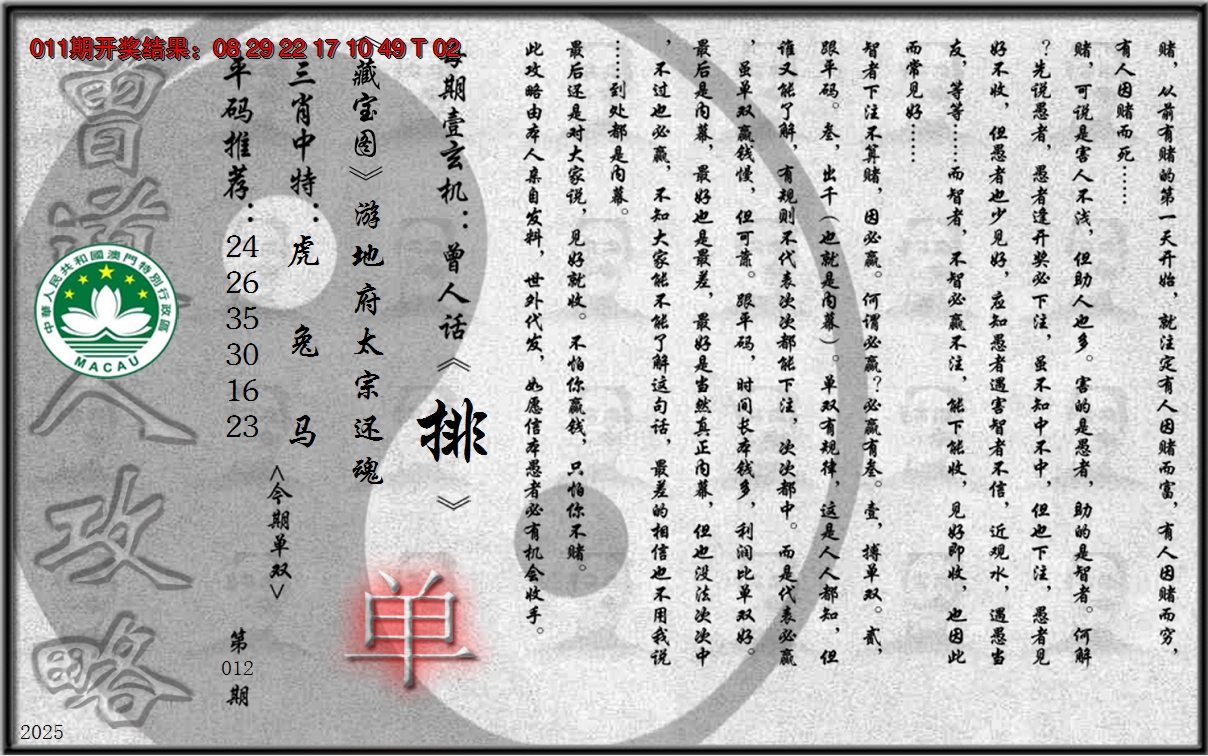 011期开奖结果：08 29 22 17 10 49 T 02
赌，从前有赌的第一天开始，就注定有人因赌而富，有人因赌而穷，
有人因赌而死……
赌，可说是害人不浅，但助人也多。害的是愚者，助的是智者。何解
？先说愚者，愚者逢开奖必下注，虽不知中不中，但也下注，愚者见
好不收，但愚者也少见好，应知愚者遇害智者不信，近观水，遇愚当
友，等等……而智者，不智必赢不注，能下能收，见好即收，也因此
而常见好……
智者下注不算赌，因必赢。何谓必赢？必赢有叁。壹，搏单双。贰，
跟平码。叁，出千（也就是内幕）。单双有规律，这是人人都知，但
谁又能了解，有规则不代表次次都能下注，次次都中。而是代表必赢
，虽单双赢钱慢，但可靠。跟平码，时间长本钱多，利润比单双好。
最后是内幕，最好也是最差，最好是当然真正内幕，但也没法次次中
，不过也必赢，不知大家能不能了解这句话，最差的相信也不用我说
……到处都是内幕。
最后还是对大家说，见好就收。不怕你赢钱，只怕你不赌。
此攻略由本人亲自发料，世外代发，如愿信本愚者必有机会收手。
每期壹玄机：曾人话《排》
《藏宝图》游地府太宗还魂
单
三肖中特：虎 兔 马
<今期单双>
平码推荐：24 26 35 30 16 23
第012期
曾道人攻略
中華人民共和國澳門特別行政區
MACAU
2025